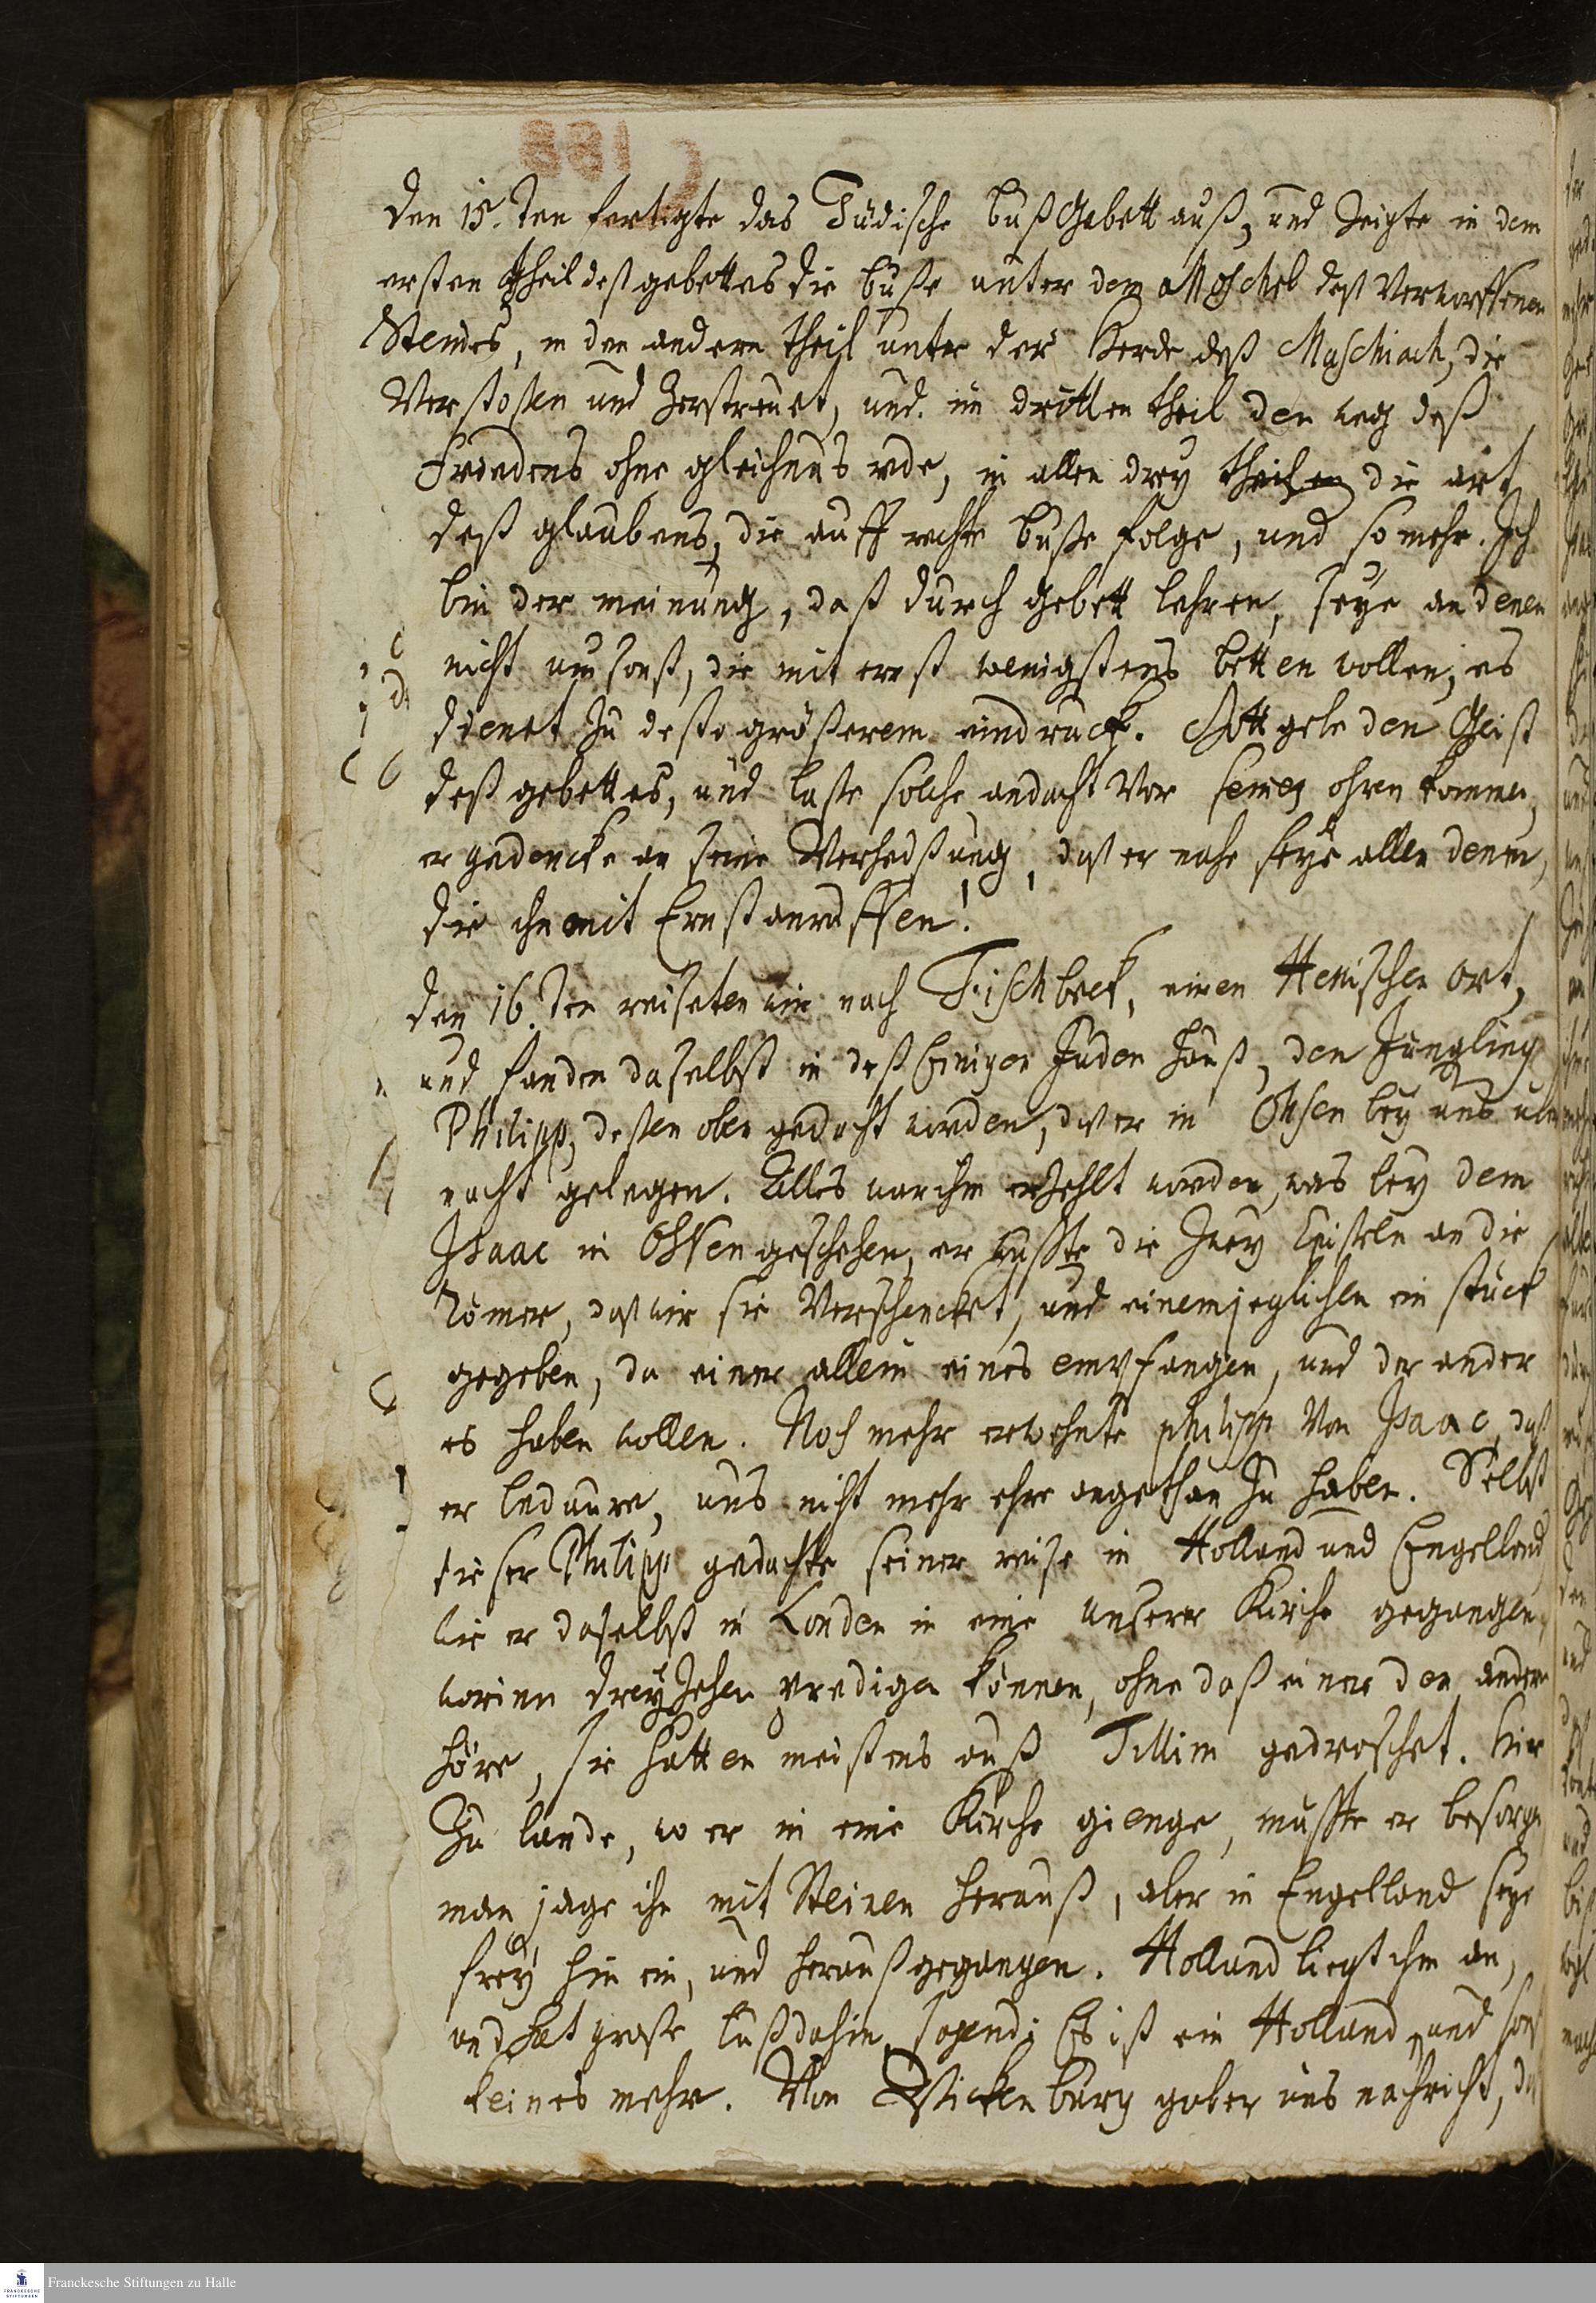 den 15. ten fertigte das Jüdische bußgebett auß, und Zeigte in dem
ersten theil deß gebettes die buße unter dem Moschel deß Verworffenen
Steines, in den andern theil unter der Herde deß Maschiach, die
Verstoßen und Zerstreuet, und im dritten theil den weg deß
Friedens ohne gleichnus rede, in allen drey theilen die art
deß glaubens, die auff rechte buße folge, und so mehr. Ich
bin der meinung, daß durch gebett lehren, seye an denen
nicht umsonst, die mit ernst wenigstens betten wollen, es
dienet zu desto größerem eindruck. Gott gebe den Geist
deß gebettes, und laße solche andacht Vor seinen ohren kommen,
er gedencke an seine Verheißung, daß er nahe seye allen denen,
die ihn mit Ernst anruffen!
den 16. ten reiseten wir nach Fischbeck, einen Heßischen ort,
und fanden daselbst in deß Einigen Juden hauß, den Jüngling
Philipp, deßen oben gedacht worden, das er in Ohsen bey uns uber
nacht gelegen. Alles war ihm erzehlt worden, was bey dem
Isaac in Ohsen geschehen, er wußte die zwey Episteln an die
Römer, das wir sie Verschencket, und einem jeglichen ein stück
gegeben, da einer allein eines empfangen, und der ander
es haben wollen. Noch mehr erwehnte Philipp Von Isaac, daß
er bedaure, uns nicht mehr ehre angethan zu haben. Selbst
dieser Philipp gedachte seiner reise in Holland und Engelland,
wie er daselbst in Londen in eine unserer Kirche gegangen,
worinn dreyzehen predigen können, ohne daß einer den andern
höre, sie hätten meistens auß Tillim gedroschet. hier
Zu lande, wo er in eine Kirche gienge, mußte er besorgen
man jage ihn mit Steinen herauß, aber in Engelland seye
frey hin ein, und herauß gegangen. Holland liegt ihm an,
und hat große lust dahin, sagend: Es ist ein Holland, und sonst
keines mehr. Von Wickenburg gab er uns nachricht, daß
Franckesche Stiftungen zu Halle